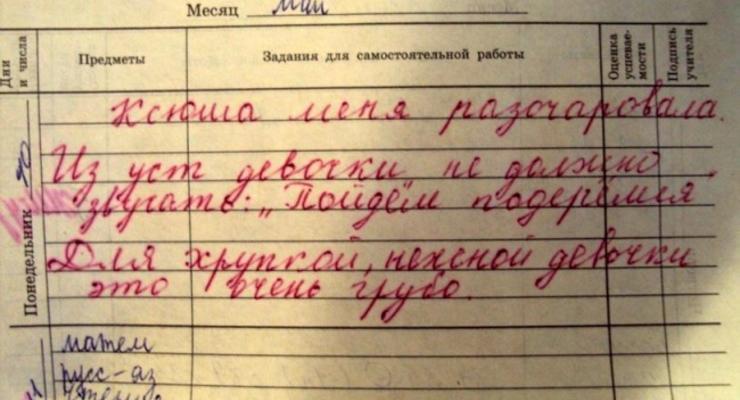 Месяц май
Дни и числа
Предметы
Задания для самостоятельной работы
Оценка успевае-мости
Подпись учителя
Понедельник
Ксюша меня разочаровала.
Из уст девочки не должно
звучать: „Пойдём подерёмся
Для хрупкой, нежной девочки
это очень грубо.
матем
русс-яз